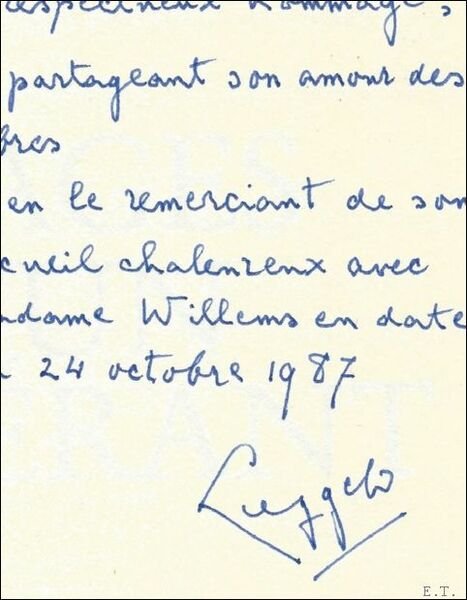 respectueux hommage,
partageant son amour des
bres
en le remerciant de son
cueil chaleureux avec
adame Willems en date
24 octobre 1987
E.T.